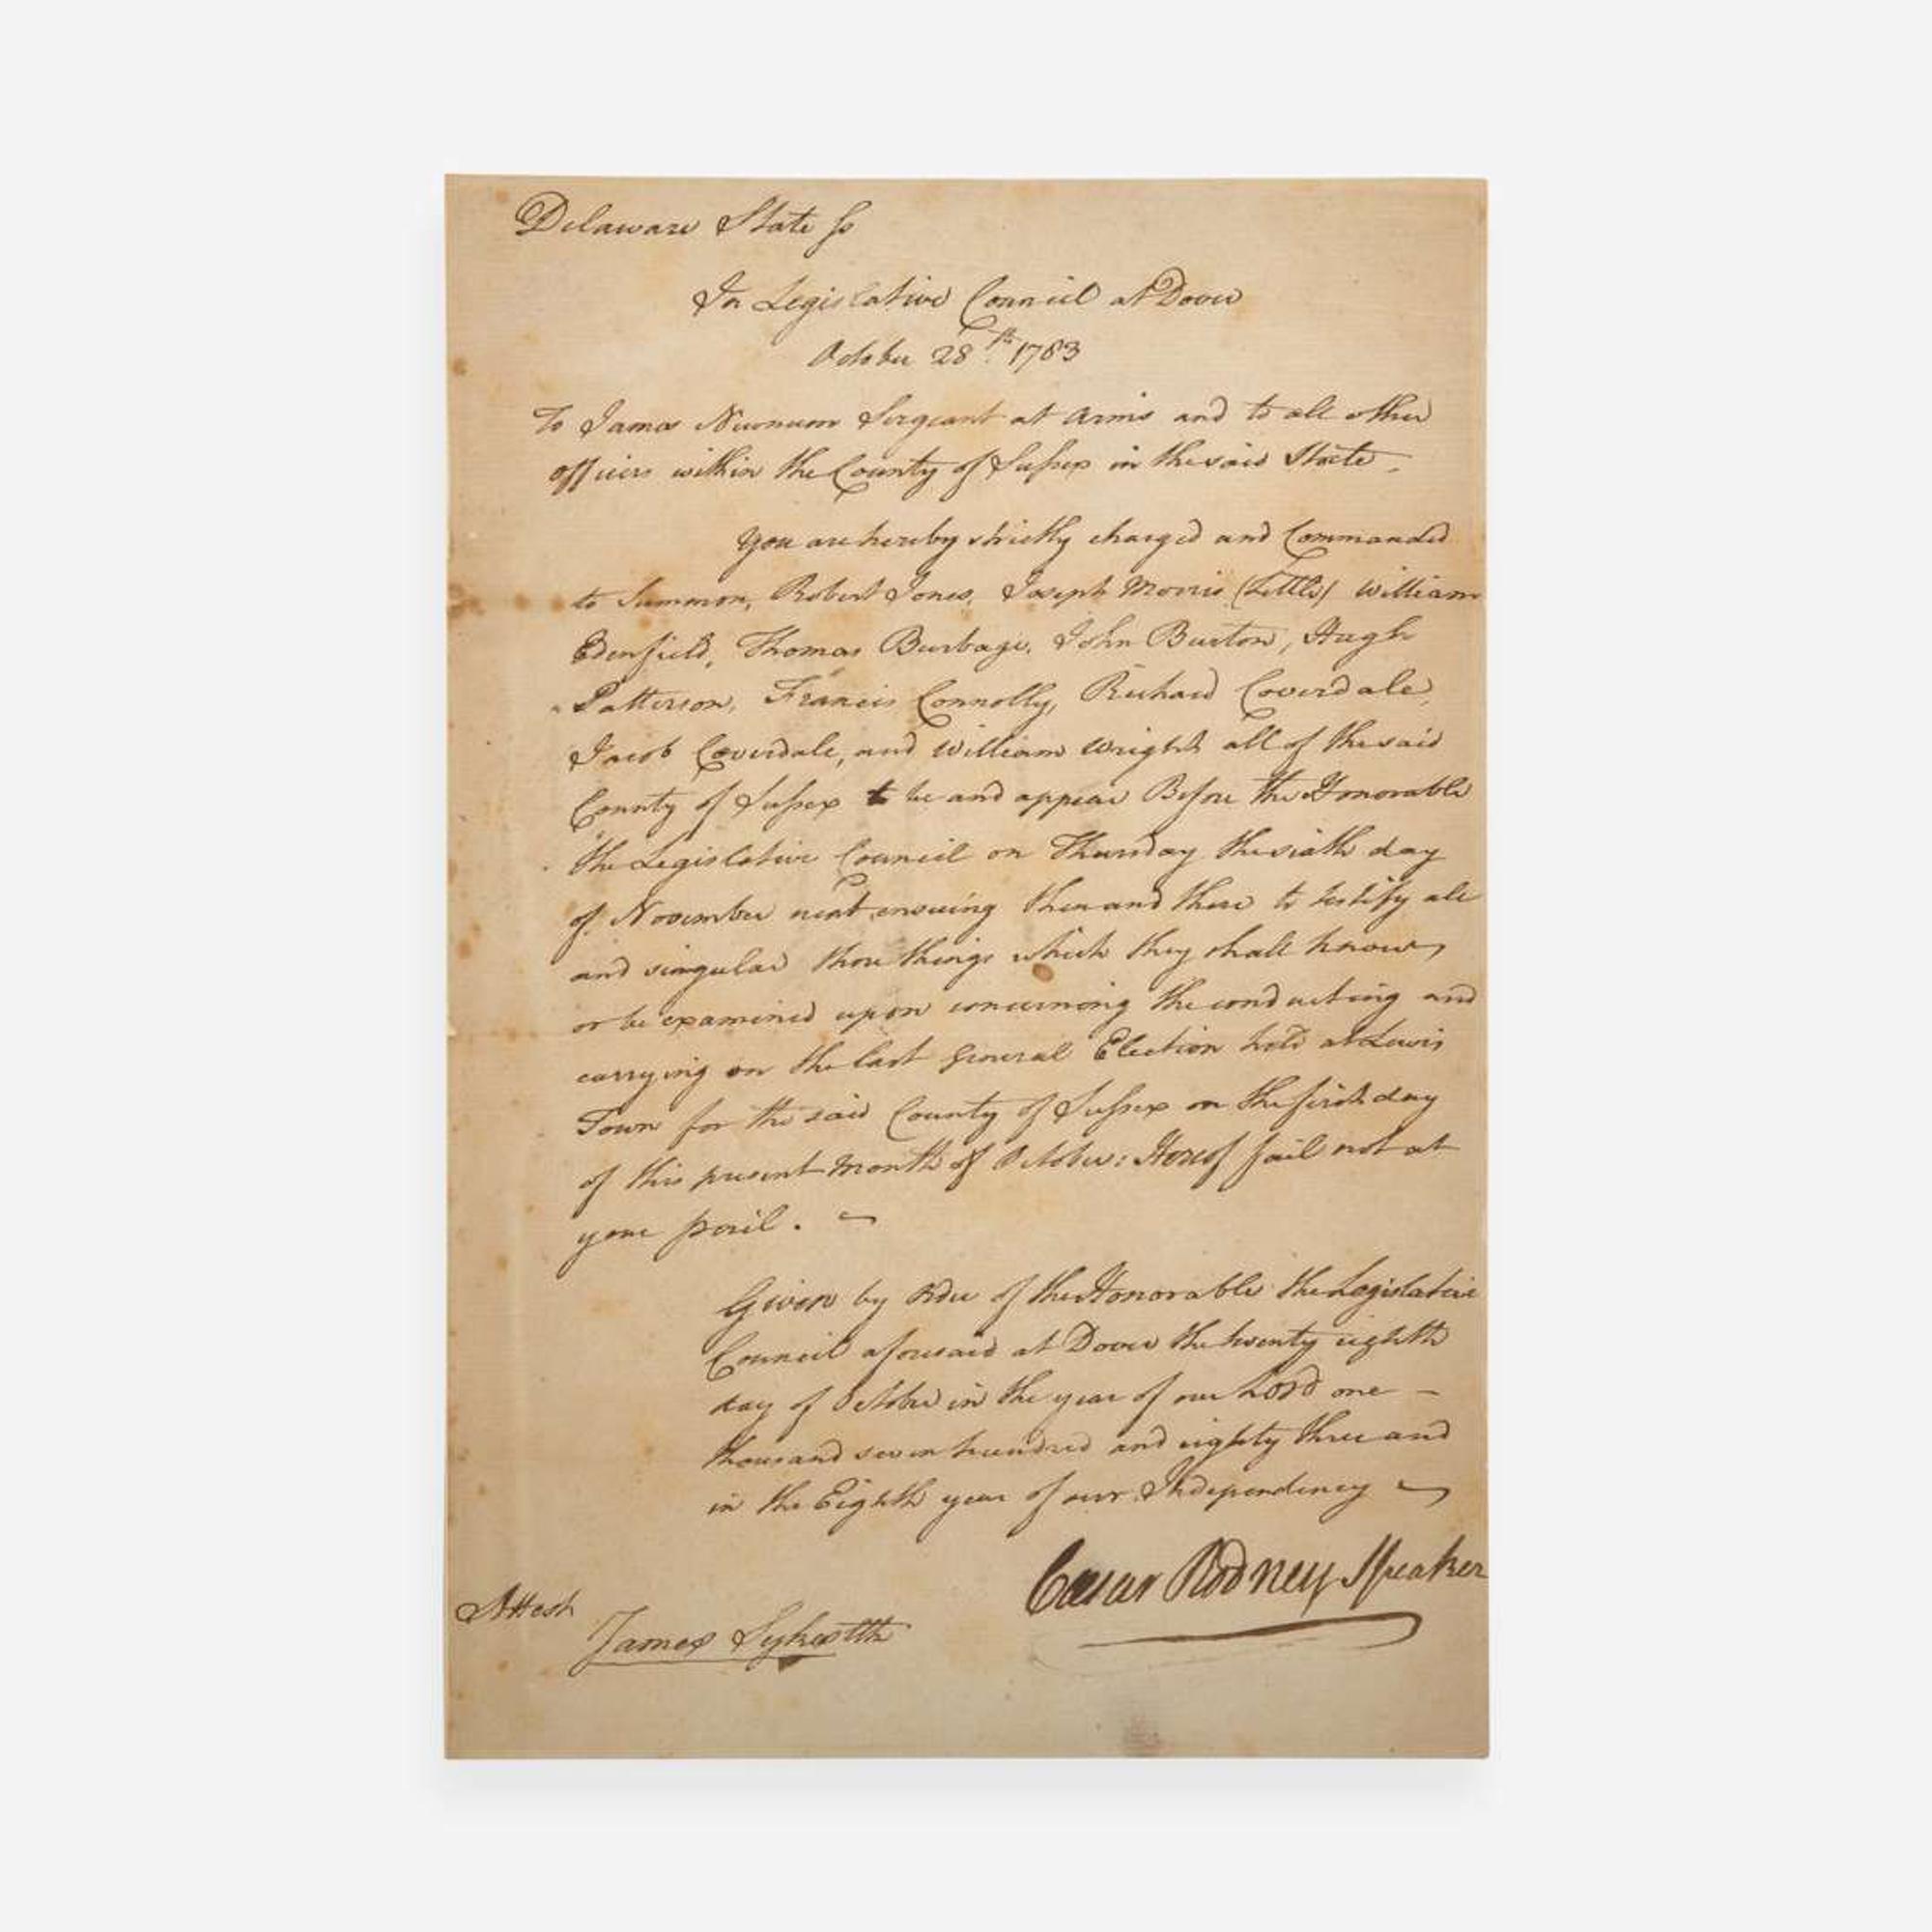 Delaware State ss
In Legislative Council at Dover
October 28th 1783
To James Newnum Sergeant at Arms and to all other
officers within the County of Sussex in the said State
You are hereby strictly charged and Commanded
to Summon, Robert Jones, Joseph Morris (Little) William
Edenfield, Thomas Burbage, John Burton, Hugh
Patterson, Francis Connolly, Richard Coverdale,
Jacob Coverdale, and William Wright all of the said
County of Sussex to be and appear Before the Honorable
the Legislative Council on Thursday the sixth day
of November next ensuing then and there to testify all
and singular those things which they shall know,
or be examined upon concerning the conducting and
carrying on the last General Election held at Lewis
Town for the said County of Sussex on the first day
of this present Month of October: Hereof fail not at
your peril. —
Given by Order of the Honorable the Legislative
Council aforesaid at Dover the twenty eighth
day of October in the year of our Lord one —
thousand seven hundred and eighty three and
in the Eighth year of our Independency —
Caesar Rodney Speaker
Attest
James Sykes